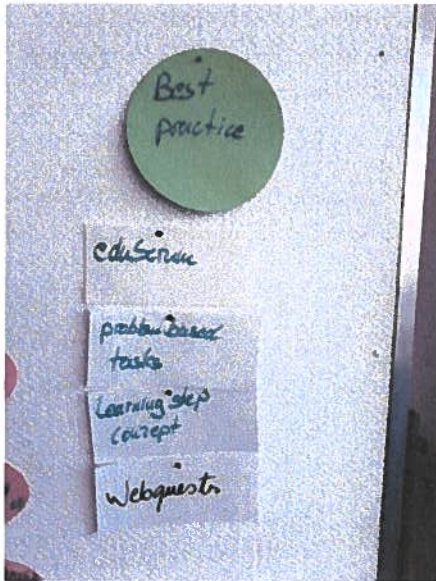 Best
practice
eduScrum
problem based
tasks
Learning step
concept
Webquests